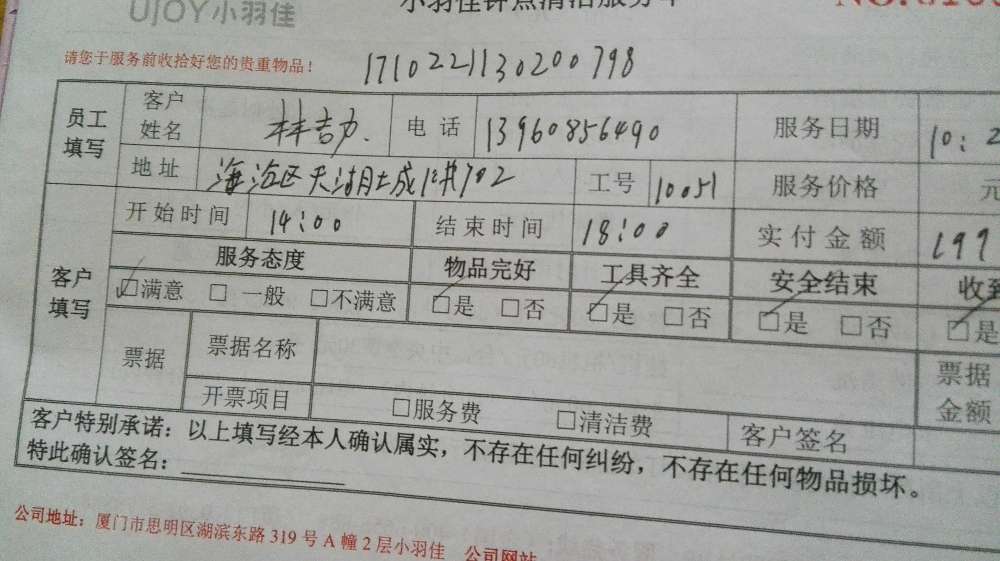 UJOY小羽佳
小羽佳钟点清洁服务单
请您于服务前收拾好您的贵重物品！ 1710221130200798
员工填写 客户姓名 林吉力 电话 13960856490 服务日期
地址 海沧区 702 工号 10051 服务价格 元
客户填写 开始时间 14:00 结束时间 18:00 实付金额
服务态度 物品完好 工具齐全 安全结束
☑满意 □一般 □不满意 ☑是 □否 ☑是 □否 ☑是 □否 ☑是
票据 票据名称 票据金额
开票项目 □服务费 □清洁费 客户签名
客户特别承诺：以上填写经本人确认属实，不存在任何纠纷，不存在任何物品损坏。
特此确认签名：
公司地址：厦门市思明区湖滨东路319号A幢2层小羽佳 公司网站